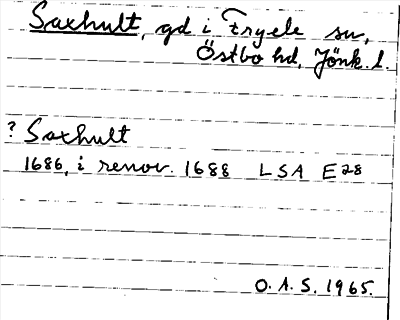 Saxhult, gd i Fryele sn,
Östbo hd, Jönk. l.
? Saxhult
1686, i renov. 1688 LSA E28
O.A.S. 1965.